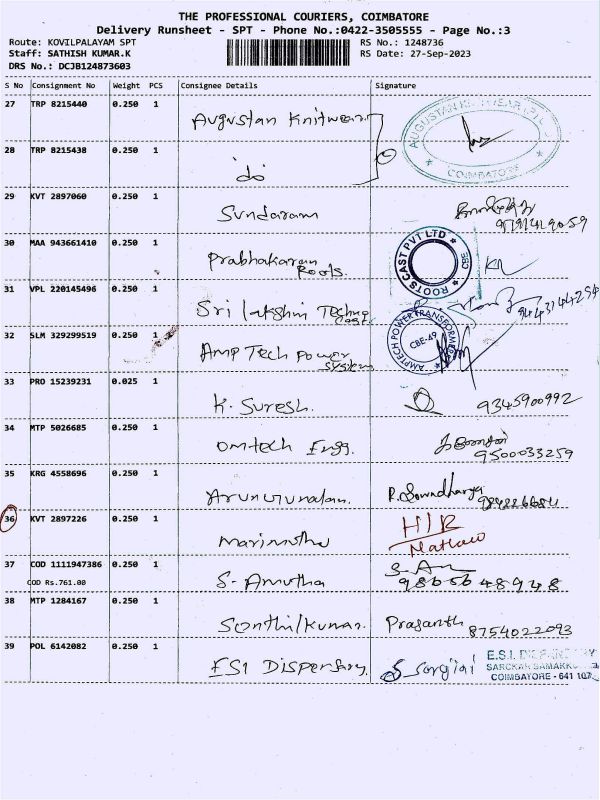 THE PROFESSIONAL COURIERS, COIMBATORE
Delivery Runsheet - SPT - Phone No.:0422-3505555 - Page No.:3
Route: KOVILPALAYAM SPT RS No.: 1248736
Staff: SATHISH KUMAR.K RS Date: 27-Sep-2023
DRS No.: DCJB124873603
S No Consignment No Weight PCS Consignee Details Signature
27 TRP 8215440 0.250 1 Augustan Knitwear
COIMBATORE
28 TRP 8215438 0.250 1 do
29 KVT 2897060 0.250 1 Sundaram
30 MAA 943661410 0.250 1 Prabhakaran
Roots
ROOTS CAST PVT LTD CBE
31 VPL 220145496 0.250 1 Sri lakshmi Techno
Cast
32 SLM 329299519 0.250 1 Amp Tech power
System
AMPTECH POWER TRANSFORMERS CBE-49
33 PRO 15239231 0.025 1 K. Suresh. 9345900992
34 MTP 5026685 0.250 1 omtech Engg. 9500033259
35 KRG 4558696 0.250 1 Arungunalan. R. Sowndharya
36 KVT 2897226 0.250 1 Marimuthu
37 COD 1111947386 0.250 1 S. Amutha
COD Rs.761.00 9865648948
38 MTP 1284167 0.250 1 Senthilkumar Prasanth 8754022093
39 POL 6142082 0.250 1 ESI Dispensary
E.S.I. DISPENSARY
COIMBATORE - 641 107